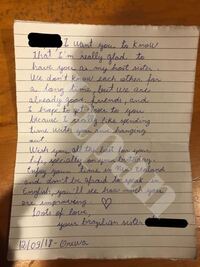 I want you to know
that I'm really glad to
have you as my host sister.
We don't know each other for
a long time, but we are
already good friends, and
I hope to get closer to you
because I really like spending
time with you and hanging
out.
Wish you all the best for your
life, specially on your birthday.
Enjoy your time in New Zealand
and don't be afraid to speak in
English, you'll see how much you
are improving. ♡
Loots of love,
your brazilian sister
12/09/18 - Orewa